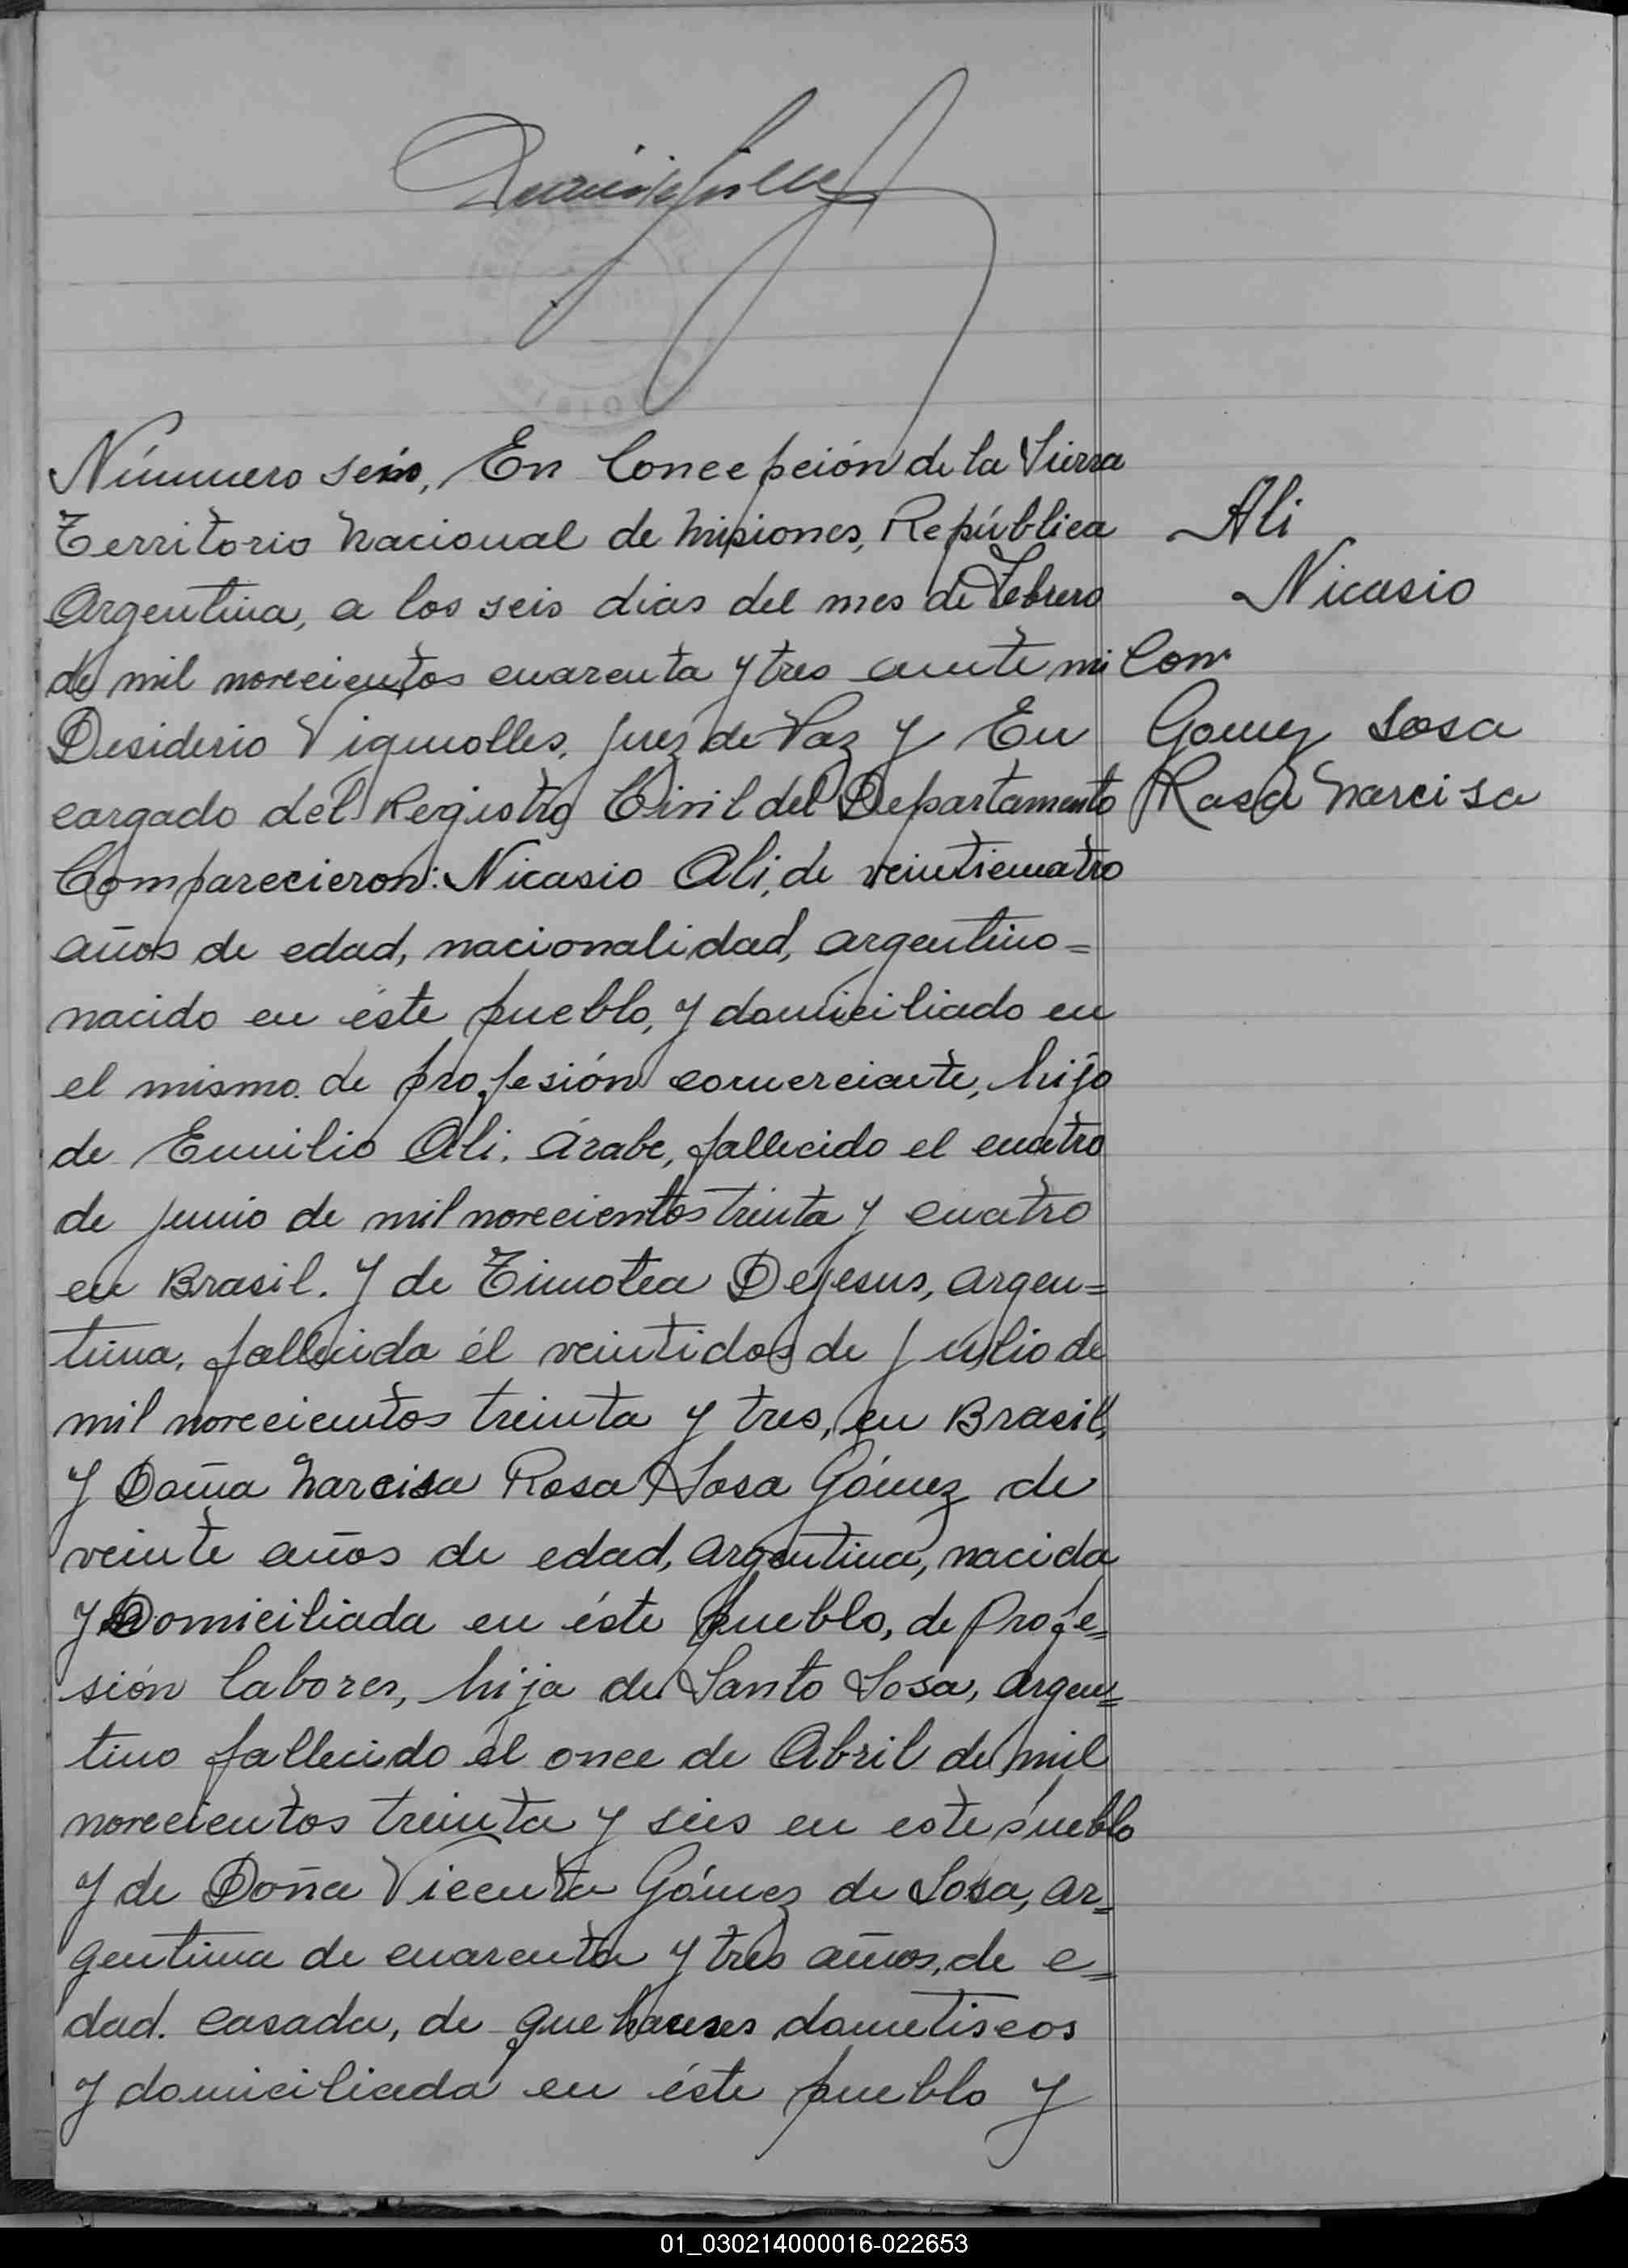 Número seis, En Concepción de la Sierra
Territorio Nacional de Misiones, República
Argentina, a los seis dias del mes de Febrero
de mil novecientos cuarenta y tres ante mi
Desiderio Vignolles, Juez de Paz y En
cargado del Registro Civil del Departamento
Comparecieron: Nicasio Ali, de veinticuatro
años de edad, nacionalidad, argentino=
nacido en éste pueblo, y domiciliado en
el mismo. de profesión comerciante, hijo
de Emilio Ali. Árabe, fallecido el cuatro
de junio de mil novecientos treinta y cuatro
en Brasil. Y de Timotea Dejesus, argen=
tina, fallecida él veintidos de Julio de
mil novecientos treinta y tres, en Brasil,
Y Doña Narcisa Rosa Sosa Gómez de
veinte años de edad, argentina, nacida
y Domiciliada en éste pueblo, de Profe=
sión labores, hija de Santo Sosa, argen=
tino fallecido él once de Abril de mil
novecientos treinta y seis en este pueblo
y de Doña Vicenta Gómez de Sosa, ar=
gentina de cuarenta y tres años, de e=
dad. casada, de quehaceres dometiscos
y domiciliada en éste pueblo y
Ali
Nicasio
Con
Gomez Sosa
Rosa Narcisa
01_030214000016-022653